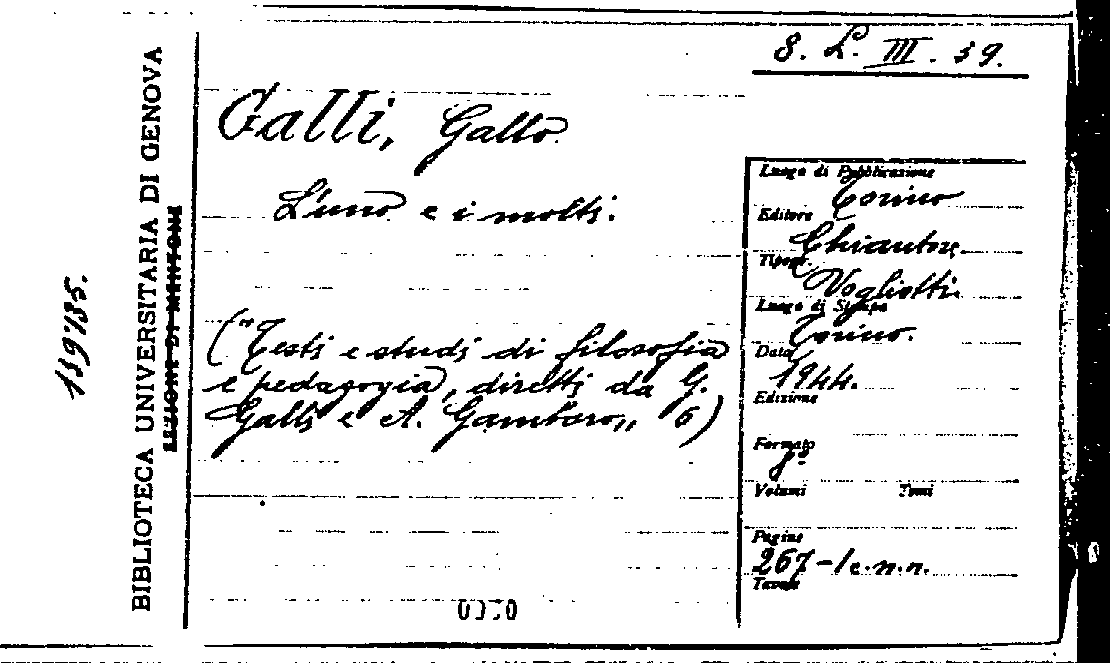 8. L. III. 39.
Galli, Gallo.
L'uno e i molti.
("Testi e studi di filosofia
e pedagogia, diretti da G.
Galli e A. Gambaro,, 6)
Luogo di Pubblicazione
Torino
Editore
Chiantore
Tipogr.
Vogliotti.
Luogo di Stampa
Torino.
Data
1944.
Edizione
Formato
8°
Volumi Tomi
Pagine
267-1c.n.n.
Tavole
BIBLIOTECA UNIVERSITARIA DI GENOVA
139735.